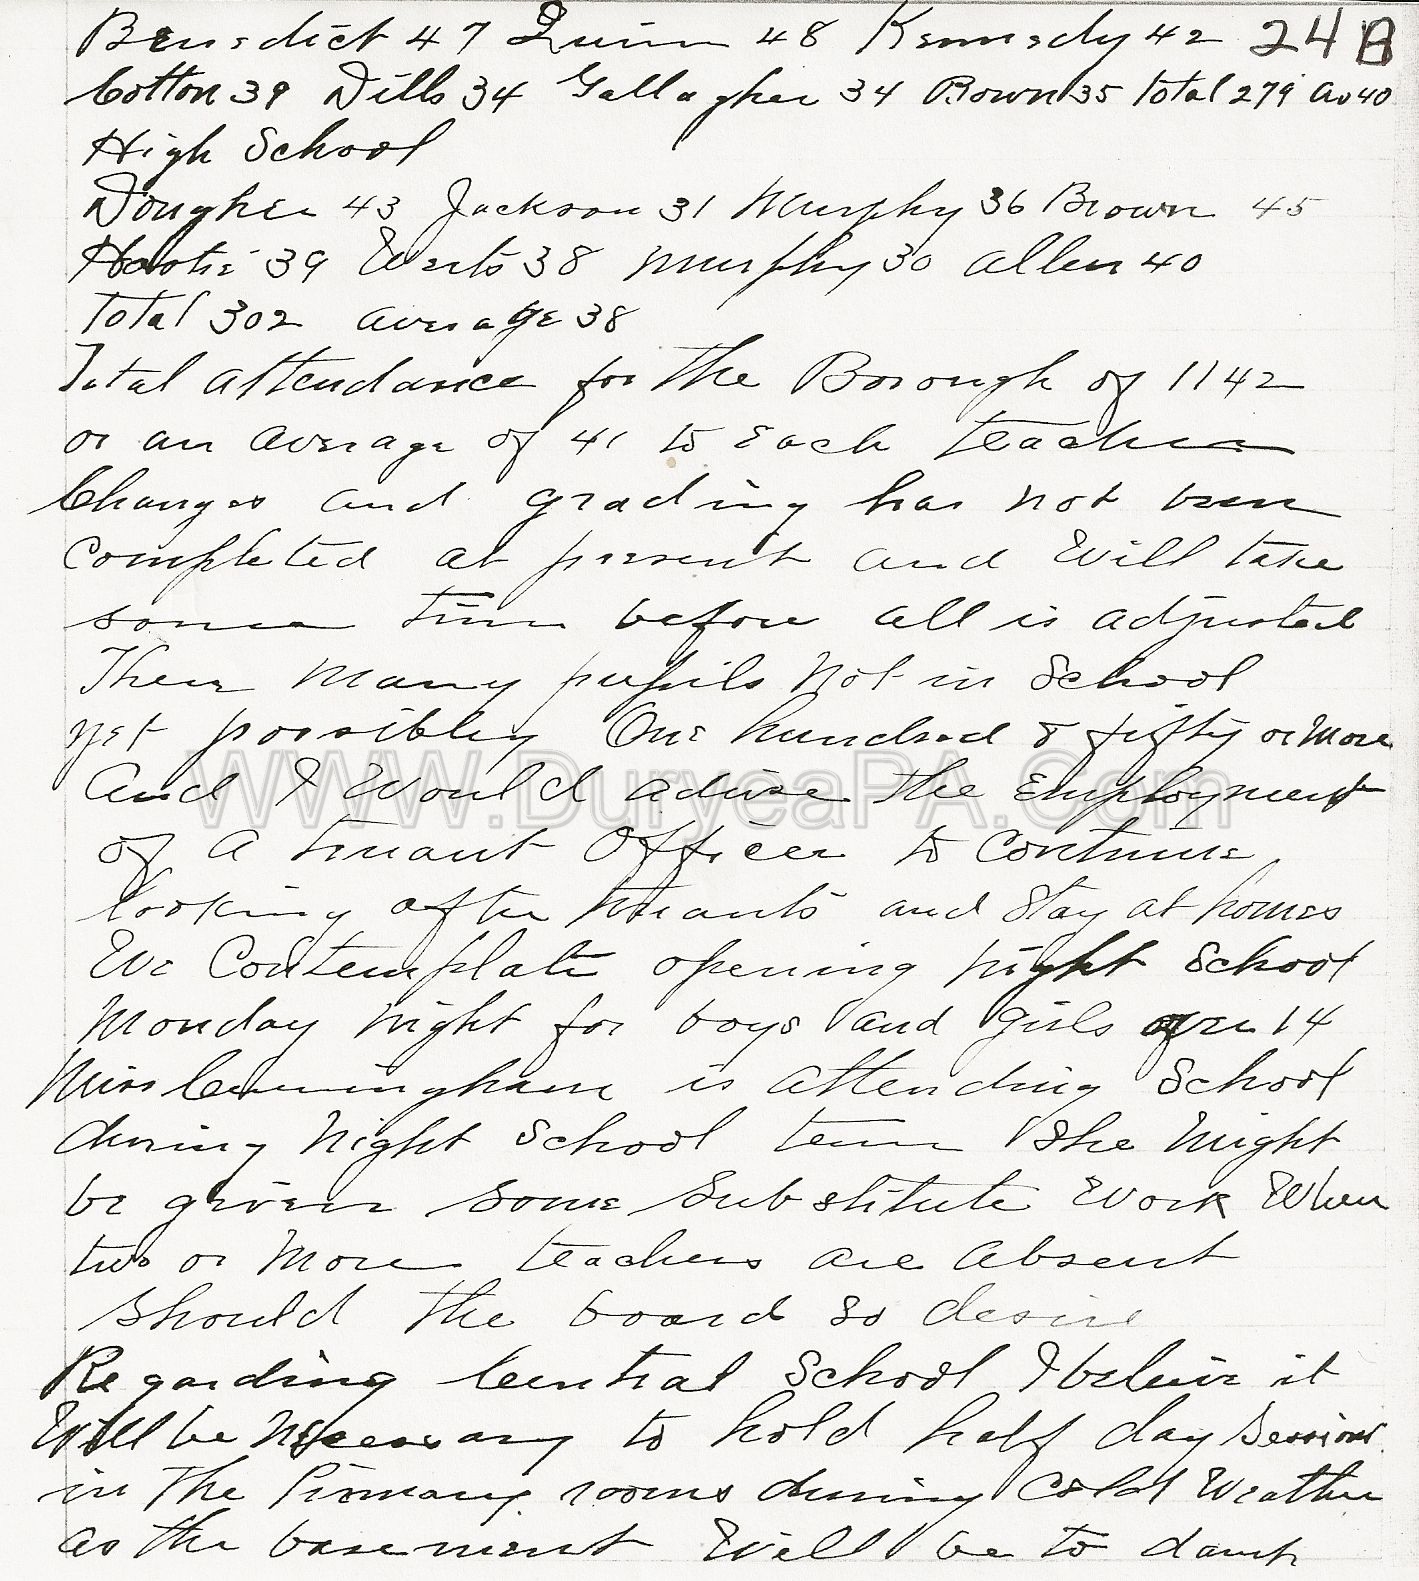 Benedict 47 Quinn 48 Kennedy 42 24 B
Cotton 39 Dills 34 Gallagher 34 Brown 35 total 279 av 40
High School
Dougher 43 Jackson 31 Murphy 36 Brown 45
Hastie 39 Werts 38 Murphy 30 Allen 40
Total 302 average 38
Total attendance for the Borough of 1142
or an average of 41 to each teacher
Changes and grading has not been
completed at present and Will take
some time before all is adjusted
There many pupils Not in School
yet possibly One hundred & fifty or More
And I Would advise the Employment
WWW.DuryeaPA.Com
of A truant Officer to Continue
looking after truants and Stay at homes
We Contemplate opening night School
Monday night for boys and girls over 14
Miss Cunningham is attending School
during Night School term She Might
be given some Substitute Work When
two or More teachers are Absent
should the board so desire
Regarding Central School I believe it
Will be Necessary to hold half day Sessions
in the Primary rooms during Cold Weather
as the basement Will be to damp